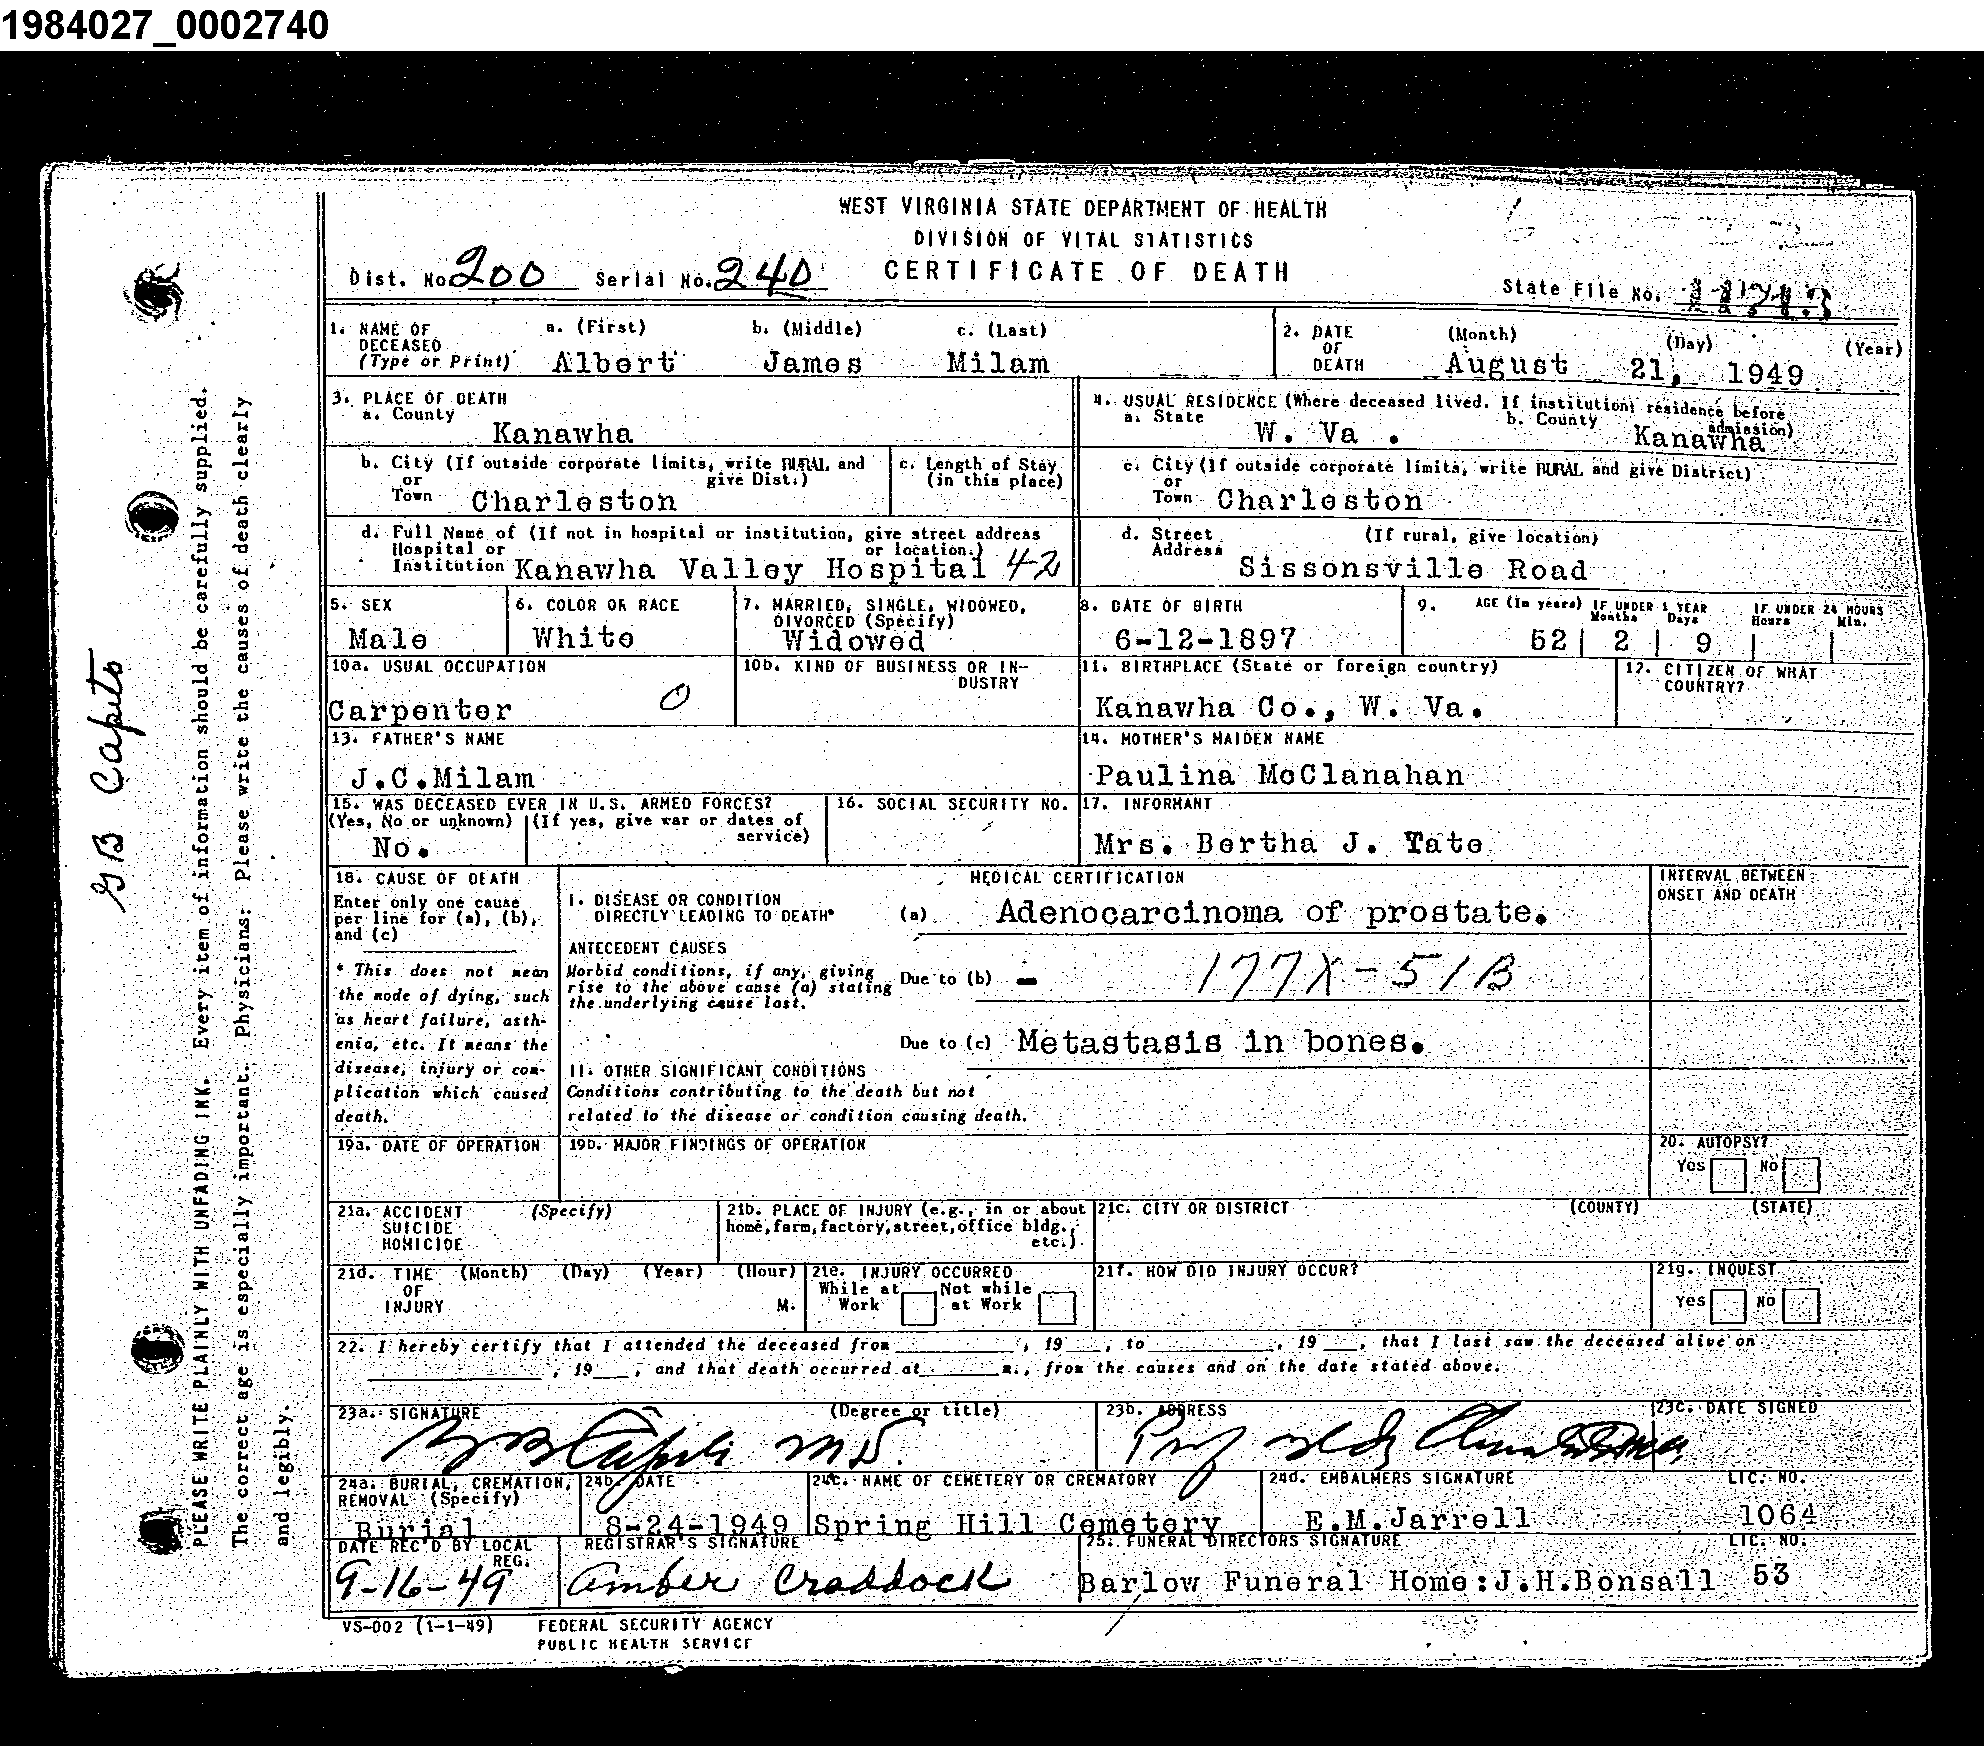 1984027_0002740
WEST VIRGINIA STATE DEPARTMENT OF HEALTH
DIVISION OF VITAL STATISTICS
Dist. No. 200 Serial No. 240 CERTIFICATE OF DEATH
State File No.
1. NAME OF DECEASED (Type or Print) a. (First) b. (Middle) c. (Last)
Albert James Milam
2. DATE OF DEATH (Month) (Day) (Year)
August 21, 1949
3. PLACE OF DEATH
a. County
Kanawha
4. USUAL RESIDENCE (Where deceased lived. If institution: residence before admission)
a. State W. Va . b. County Kanawha
b. City (If outside corporate limits, write RURAL and give Dist.)
or Town Charleston
c. Length of Stay (in this place)
c. City (If outside corporate limits, write RURAL and give District)
or Town Charleston
d. Full Name of (If not in hospital or institution, give street address or location.)
Hospital or Institution Kanawha Valley Hospital 42
d. Street Address (If rural, give location)
Sissonsville Road
5. SEX
Male
6. COLOR OR RACE
White
7. MARRIED, SINGLE, WIDOWED, DIVORCED (Specify)
Widowed
8. DATE OF BIRTH
6-12-1897
9. AGE (In years) IF UNDER 1 YEAR Months Days IF UNDER 24 HOURS Hours Min.
52 2 9
10a. USUAL OCCUPATION
Carpenter O
10b. KIND OF BUSINESS OR INDUSTRY
11. BIRTHPLACE (State or foreign country)
Kanawha Co., W. Va.
12. CITIZEN OF WHAT COUNTRY?
13. FATHER'S NAME
J.C.Milam
14. MOTHER'S MAIDEN NAME
Paulina McClanahan
15. WAS DECEASED EVER IN U.S. ARMED FORCES?
(Yes, No or unknown) (If yes, give war or dates of service)
No.
16. SOCIAL SECURITY NO.
17. INFORMANT
Mrs. Bertha J. Tate
18. CAUSE OF DEATH
Enter only one cause
per line for (a), (b),
and (c)
* This does not mean
the mode of dying, such
as heart failure, asth-
enia, etc. It means the
disease, injury or com-
plication which caused
death.
MEDICAL CERTIFICATION
INTERVAL BETWEEN
ONSET AND DEATH
I. DISEASE OR CONDITION
DIRECTLY LEADING TO DEATH* (a) Adenocarcinoma of prostate.
ANTECEDENT CAUSES
Morbid conditions, if any, giving
rise to the above cause (a) stating
the underlying cause last.
Due to (b) - 177X-51B
Due to (c) Metastasis in bones.
II. OTHER SIGNIFICANT CONDITIONS
Conditions contributing to the death but not
related to the disease or condition causing death.
19a. DATE OF OPERATION
19b. MAJOR FINDINGS OF OPERATION
20. AUTOPSY?
Yes No
21a. ACCIDENT (Specify)
SUICIDE
HOMICIDE
21b. PLACE OF INJURY (e.g., in or about
home, farm, factory, street, office bldg.,
etc.)
21c. CITY OR DISTRICT (COUNTY) (STATE)
21d. TIME (Month) (Day) (Year) (Hour)
OF
INJURY M.
21e. INJURY OCCURRED
While at Work Not while at Work
21f. HOW DID INJURY OCCUR?
21g. INQUEST
Yes No
22. I hereby certify that I attended the deceased from , 19 , to , 19 , that I last saw the deceased alive on
, 19 , and that death occurred at m., from the causes and on the date stated above.
23a. SIGNATURE (Degree or title)
G B Caputo M D.
23b. ADDRESS
23c. DATE SIGNED
24a. BURIAL, CREMATION, REMOVAL (Specify)
Burial
24b. DATE
8-24-1949
24c. NAME OF CEMETERY OR CREMATORY
Spring Hill Cemetery
24d. EMBALMERS SIGNATURE LIC. NO.
E.M.Jarrell 1064
DATE REC'D BY LOCAL REG.
9-16-49
REGISTRAR'S SIGNATURE
Amber Craddock
25. FUNERAL DIRECTORS SIGNATURE LIC. NO.
Barlow Funeral Home:J.H.Bonsall 53
VS-002 (1-1-49) FEDERAL SECURITY AGENCY
PUBLIC HEALTH SERVICE
G B Caputo
PLEASE WRITE PLAINLY WITH UNFADING INK. Every item of information should be carefully supplied.
The correct age is especially important. Physicians: Please write the causes of death clearly
and legibly.